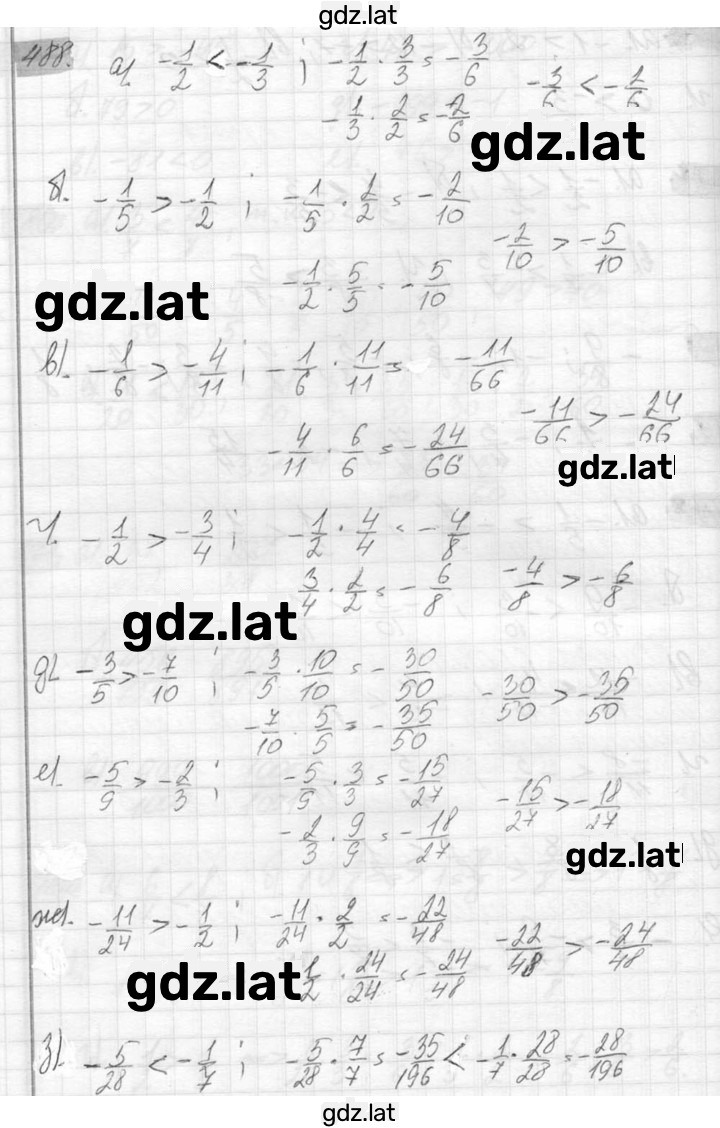 gdz.lat
488.
а). -1/2 < -1/3 ; -1/2 · 3/3 = -3/6
-1/3 · 2/2 = -2/6
-3/6 < -2/6
gdz.lat
б). -1/5 > -1/2 ; -1/5 · 2/2 = -2/10
-1/2 · 5/5 = -5/10
-2/10 > -5/10
gdz.lat
в). -1/6 > -4/11 ; -1/6 · 11/11 = -11/66
-4/11 · 6/6 = -24/66
-11/66 > -24/66
gdz.lat
г. -1/2 > -3/4 ; -1/2 · 4/4 = -4/8
3/4 · 2/2 = -6/8
-4/8 > -6/8
gdz.lat
д). -3/5 > -7/10 ; -3/5 · 10/10 = -30/50
-7/10 · 5/5 = -35/50
-30/50 > -35/50
е). -5/9 > -2/3 ; -5/9 · 3/3 = -15/27
-2/3 · 9/9 = -18/27
-15/27 > -18/27
gdz.lat
ж). -11/24 > -1/2 ; -11/24 · 2/2 = -22/48
1/2 · 24/24 = -24/48
-22/48 > -24/48
gdz.lat
з). -5/28 < -1/7 ; -5/28 · 7/7 = -35/196 < -1/7 · 28/28 = -28/196
gdz.lat